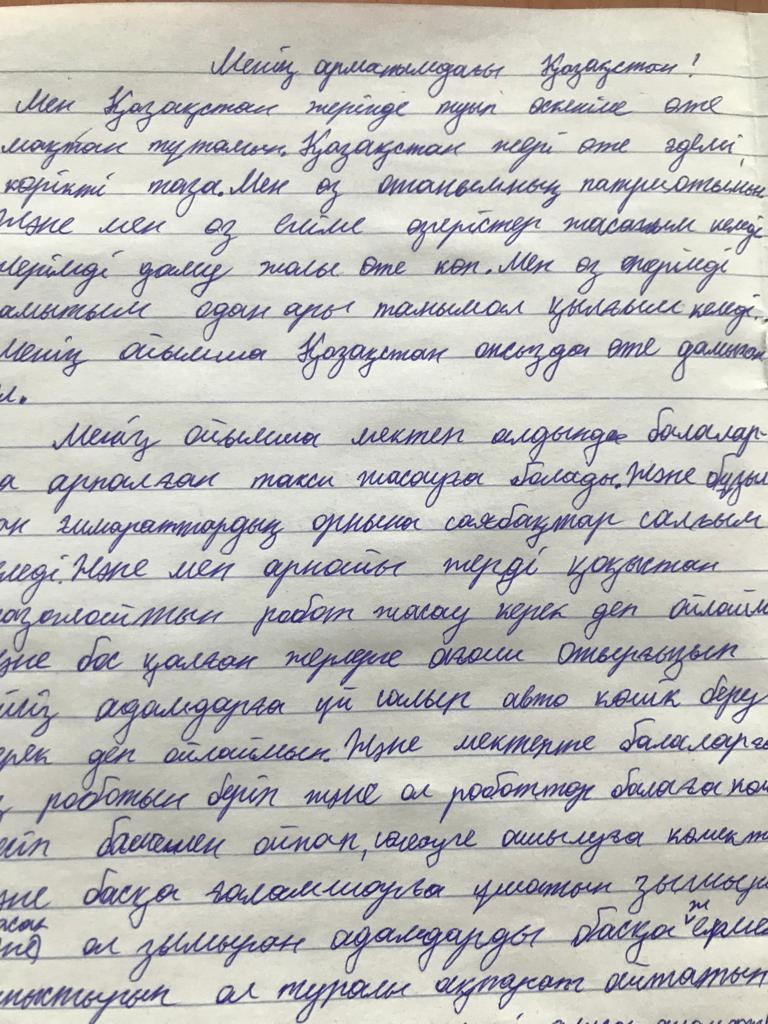 Менің арманымдағы Қазақстан!
Мен Қазақстан жерінде туып өскеніме өте
мақтан тұтамын. Қазақстан жері өте әдемі,
көрікті таза. Мен өз отанымның патриотымын
Және мен өз еліме өзгерістер жасағым келеді
Жерімді даму жолы өте көп. Мен өз жерімді
амытым одан ары танымал қылғым келеді.
Менің ойымша Қазақстан онсызда өте дамыған
л.
Менің ойымша мектеп алдында балалар-
а арналған такси жасауға болады. Және бұзыл
ан ғимараттардың орнына саябақтар салғым
еледі. Және мен арнайы жерді қоқыстан
тазалайтын робот жасау керек деп ойлайм
және бос қалған жерлерге ағаш отырғызып
үйсіз адамдарға үй салып авто көшік беру
ерек деп ойлаймын. Және мектепте балаларға
роботын беріп және ол роботтар балаға көм
ойнап, ашылуға көмект
және басқа ғаламшарға ұшатын зымыран
жасап
ол зымыран адамдарды басқа жерме
ныстырып ол туралы ақпарат айтатын